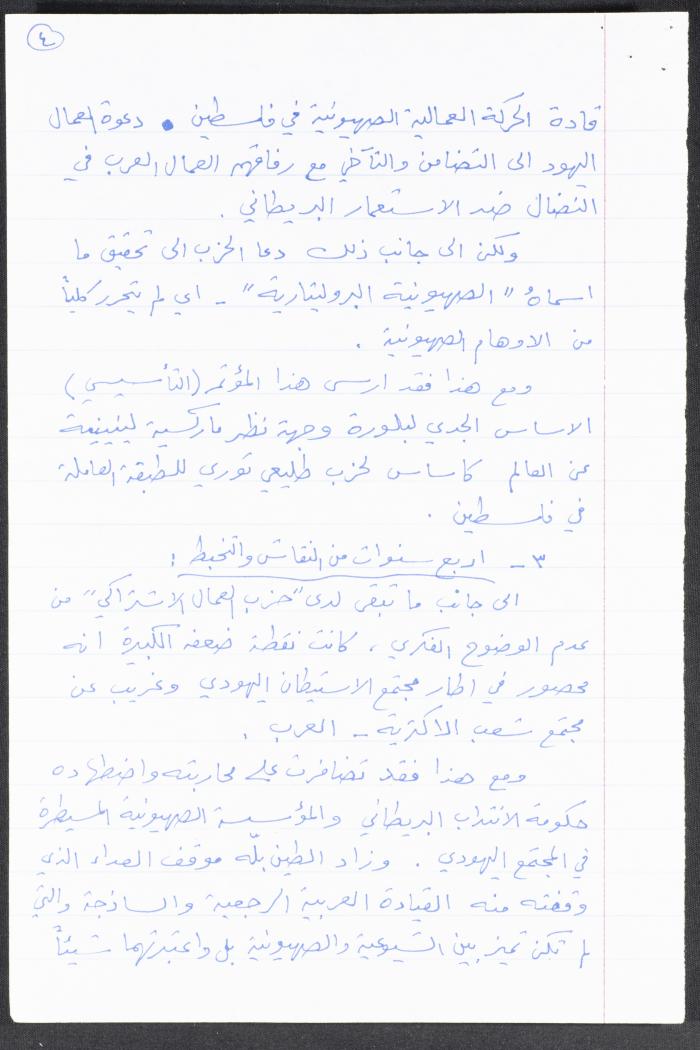 ٤
قادة الحركة العمالية الصهيونية في فلسطين . دعوة العمال
اليهود الى التضامن والتآخي مع رفاقهم العمال العرب في
النضال ضد الاستعمار البريطاني .
ولكن الى جانب ذلك دعا الحزب الى تحقيق ما
اسماهُ "الصهيونية البروليتارية" - اي لم يتحرر كلياً
من الاوهام الصهيونية .
ومع هذا فقد ارسى هذا المؤتمر (التأسيسي)
الاساس الجدي لبلورة وجهة نظر ماركسية لينينية
عن العالم كاساس لحزب طليعي ثوري للطبقة العاملة
في فلسطين .
٣ - اربع سنوات من النقاش والتخبط :
الى جانب ما تبقى لدى "حزب العمال الاشتراكي" من
عدم الوضوح الفكري ، كانت نقطة ضعفه الكبيرة انه
محصور في اطار مجتمع الاستيطان اليهودي وغريب عن
مجتمع شعب الاكثرية - العرب .
ومع هذا فقد تضافرت على محاربته واضطهاده
حكومة الانتداب البريطاني والمؤسسة الصهيونية المسيطرة
في المجتمع اليهودي . وزاد الطين بلّه موقف العداء الذي
وقفته منه القيادة العربية الرجعية والساذجة والتي
لم تكن تميز بين الشيوعية والصهيونية بل واعتبرتهما شيئاً